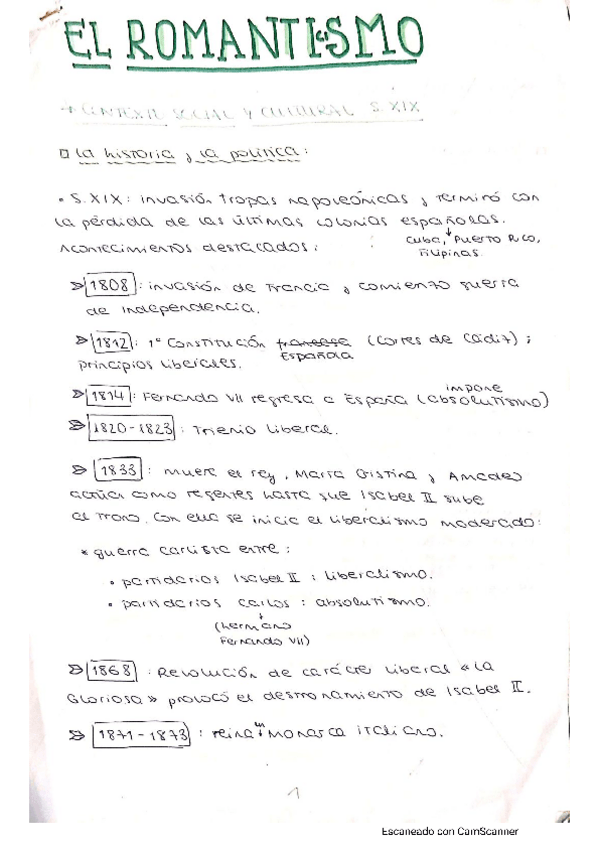 EL ROMANTISMO
→ CONTEXTO SOCIAL Y CULTURAL S. XIX
□ La historia y la política:
• S. XIX: invasión tropas napoleónicas y terminó con
la pérdida de las últimas colonias españolas.
Acontecimientos destacados:
↓
Cuba, Puerto Rico,
Filipinas.
⇒ 1808: invasión de Francia y comienzo guerra
de independencia.
⇒ 1812: 1ª Constitución francesa (Cortes de Cádiz);
Española
principios liberales.
impone
⇒ 1814: Fernando VII regresa a España (absolutismo)
⇒ 1820-1823: Trienio liberal.
⇒ 1833: muere el rey, María Cristina y Amadeo
actúan como regentes hasta que Isabel II sube
al trono. Con ella se inicia el liberalismo moderado:
* guerra carlista entre:
• partidarios Isabel II: liberalismo.
• partidarios Carlos: absolutismo.
↓
(hermano
Fernando VII)
⇒ 1868: Revolución de carácter liberal «La
Gloriosa» provocó el destronamiento de Isabel II.
⇒ 1871-1873: reina un monarca italiano.
1
Escaneado con CamScanner